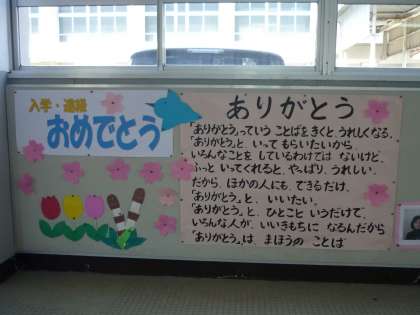 入学・進級
おめでとう
ありがとう
「ありがとう」っていう ことばを きくと、うれしくなる。
「ありがとう」と、いって もらいたいから、
いろんなことを しているわけでは ないけど、
ふっと いってくれると、やっぱり、うれしい。
だから、ほかの人にも、できるだけ、
「ありがとう」と、いいたい。
「ありがとう」と、ひとこと いうだけで、
いろんな人が、いいきもちに なるんだから
「ありがとう」は、まほうの ことば